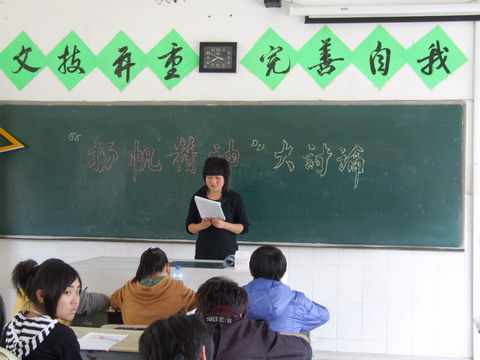 文技并重 完善自我
“扬帆精神”大討論